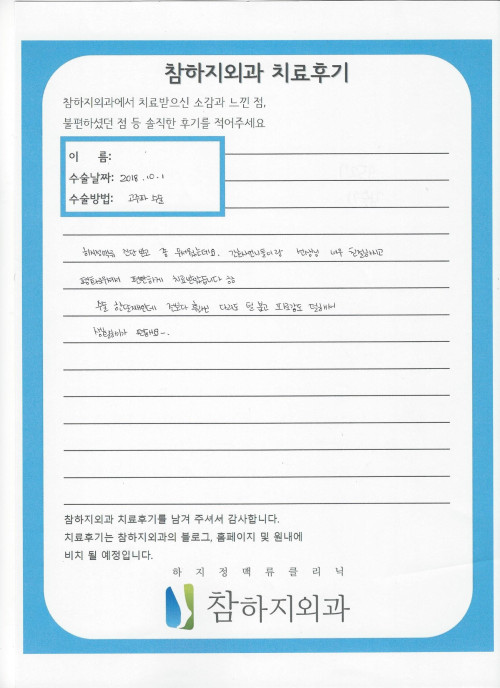 참하지외과 치료후기
참하지외과에서 치료받으신 소감과 느낀 점,
불편하셨던 점 등 솔직한 후기를 적어주세요
이 름:
수술날짜: 2018.10.1
수술방법: 고주파 수술
하지정맥류 진단 받고 좀 무서웠는데요. 간호사언니들이랑 선생님 너무 친절하시고
편하게 치료받았습니다
수술 한달째인데 전보다 훨씬 다리도 덜 붓고 피로감도 덜해서
참하지외과 치료후기를 남겨 주셔서 감사합니다.
치료후기는 참하지외과의 블로그, 홈페이지 및 원내에
비치 될 예정입니다.
하지정맥류클리닉
참하지외과